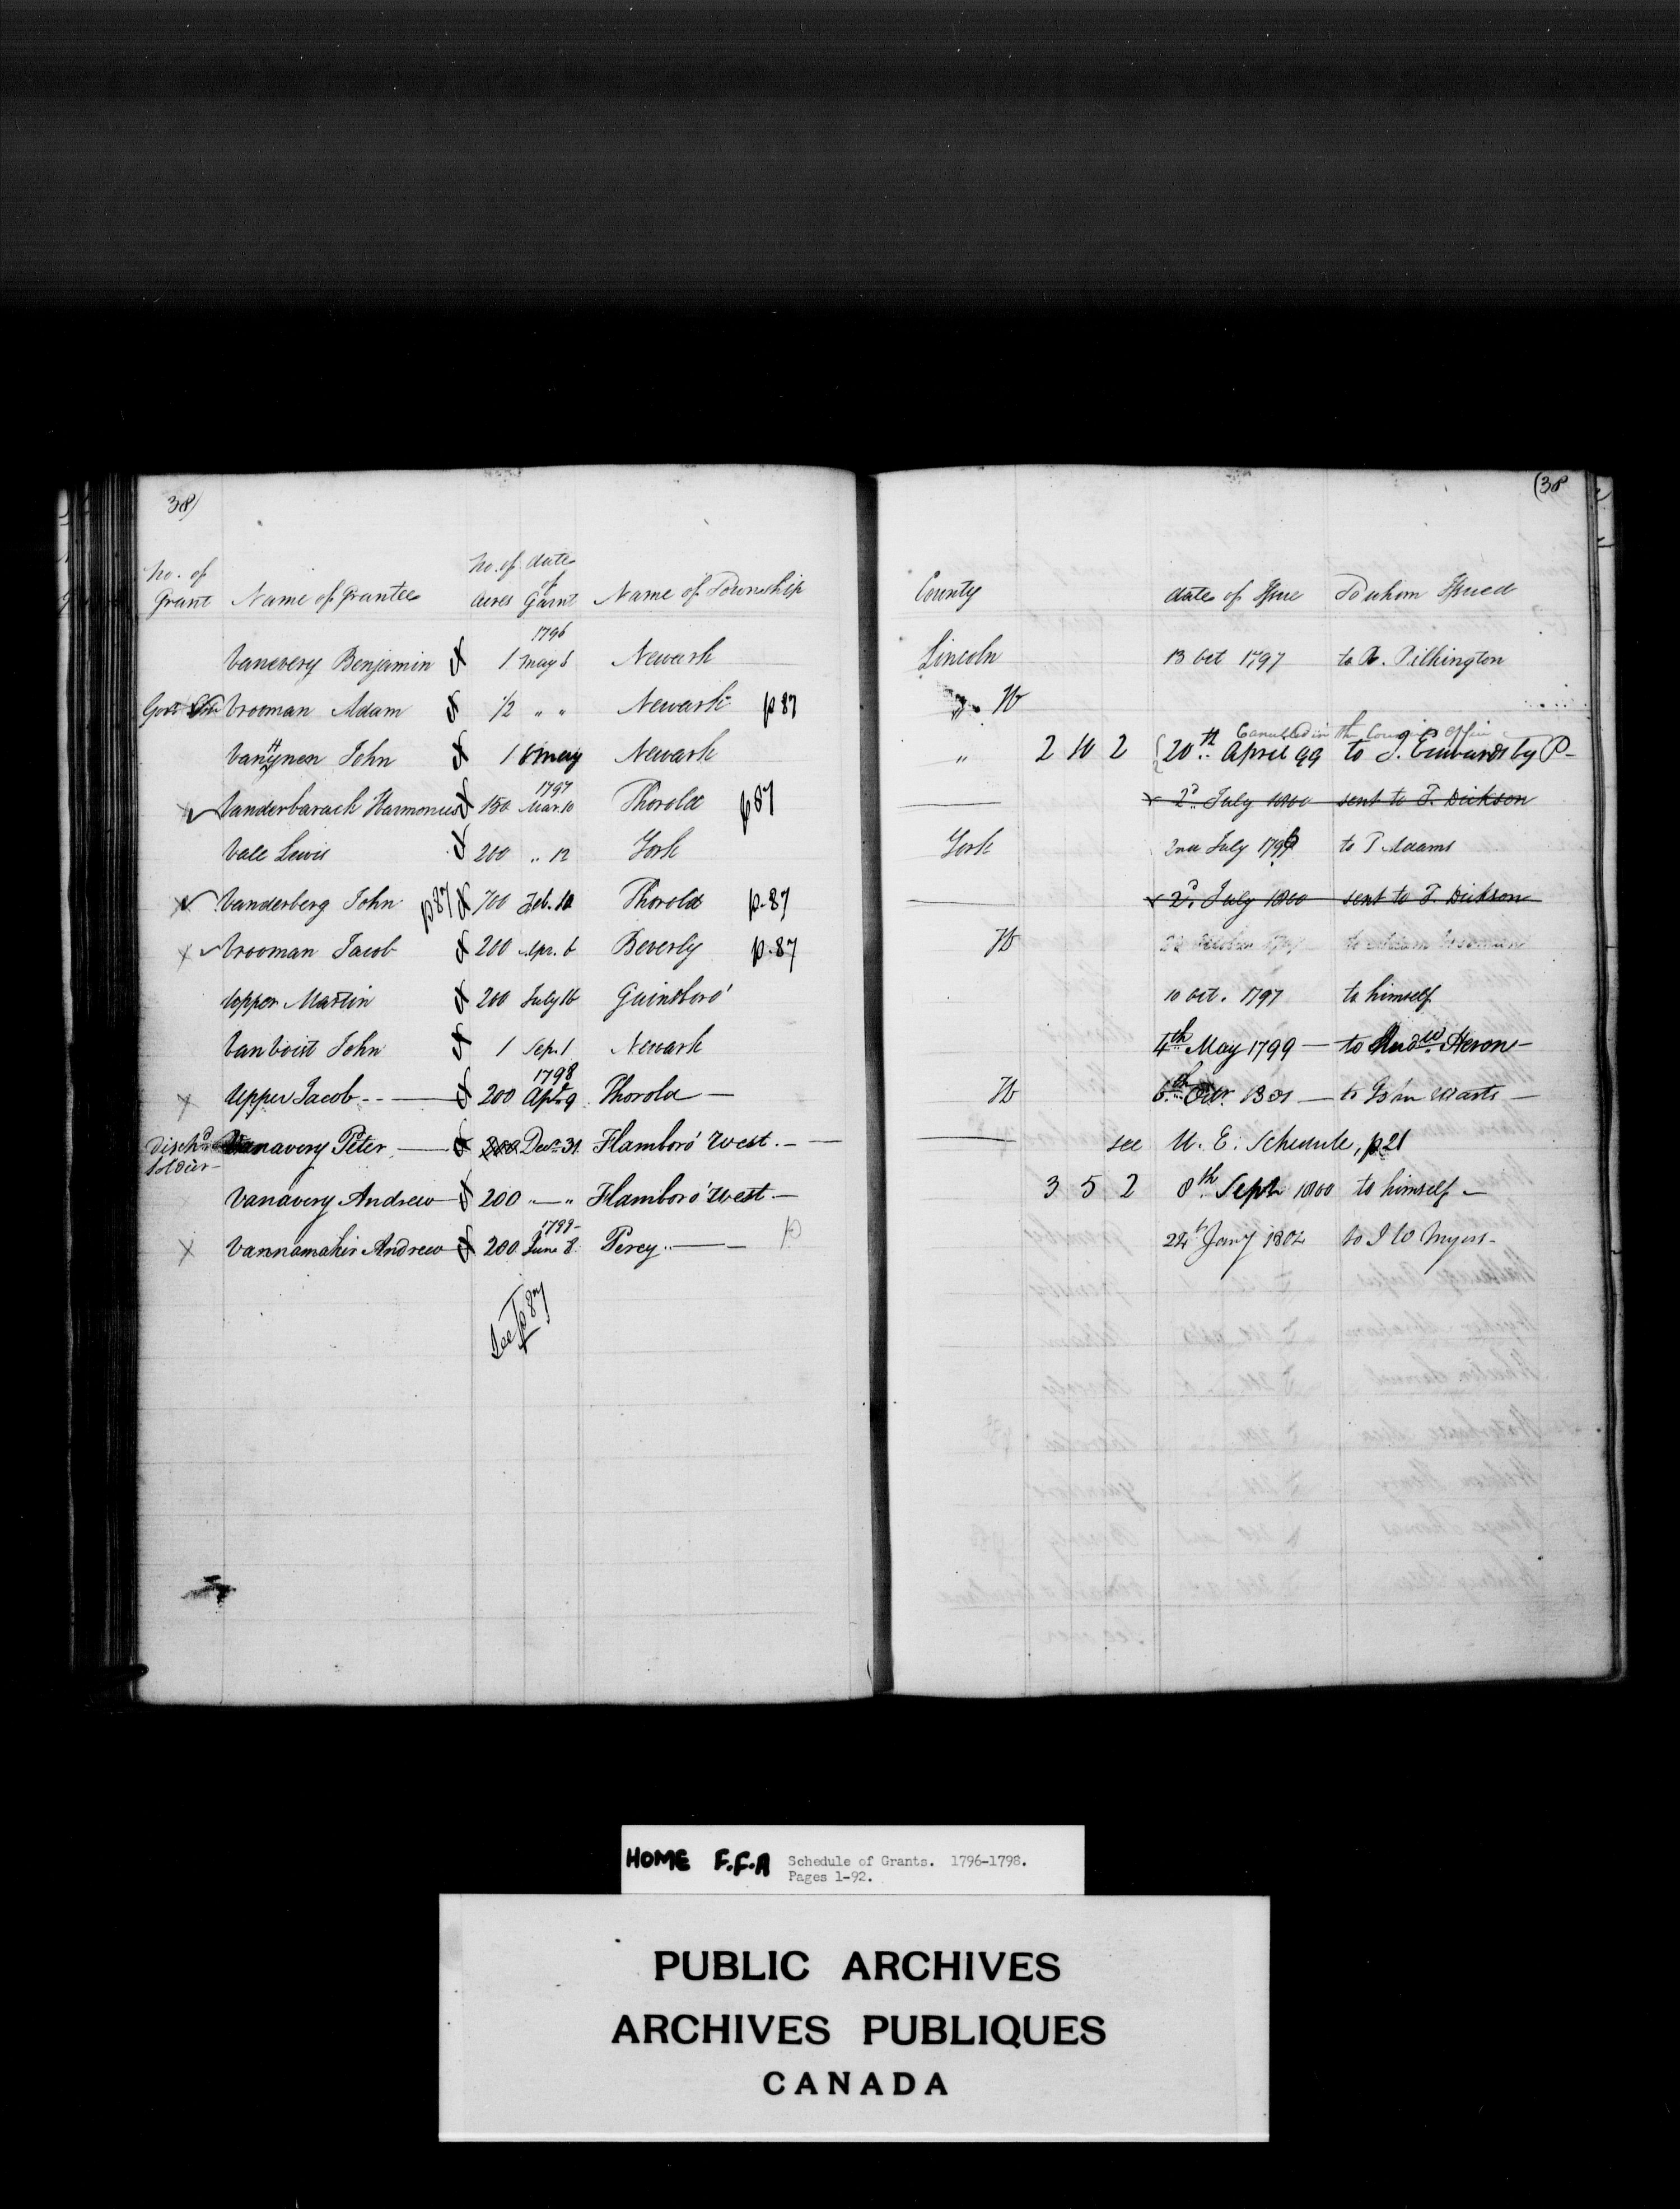 38)
(38
No. of Grant Name of Grantee No. of Acres date of Garnt Name of Township County date of Issue To whom Issued
1796
Vanevery Benjamin 1 May 6 Newark Lincoln 13 Oct 1797 to R. Pilkington
Vrooman Adam 1/2 " " Newark p 87 "
Cancelled in the
John 1 6 May Newark " 2 10 2 20th April 99 to J. Edwards by P-
1797
Vanderbarack Harmonius 150 Mar. 10 Thorold p 87 2d July 1800 sent to T. Dickson
Vale Lewis 200 " 12 York York 2nd July 179 to P Adams
Vanderberg John p 87 700 Feb. 10 Thorold p. 87 2d July 1800 sent to T. Dickson
Vrooman Jacob 200 Apr. 6 Beverly p. 87
Upper Martin 200 July 16 Gainsboro' 10 Oct. 1797 to himself
John 1 Sep. 1 Newark 4th May 1799 — to Andw. Heron —
1798
Upper Jacob 200 Apr 9 Thorold — 6th 1801 — to John —
Dischd Soldier Vanavery Peter 200 Decr 31 Flamboro' West. — see U. E. Schedule, p 21
Vanavery Andrew 200 " — " Flamboro' West — 3 5 2 8th Sept 1800 to himself —
June 8. Percy
Andrew 200 24 Jany 1802 to J W Myers -
See p 87
HOME F.F.A Schedule of Grants. 1796-1798.
Pages 1-92.
PUBLIC ARCHIVES
ARCHIVES PUBLIQUES
CANADA